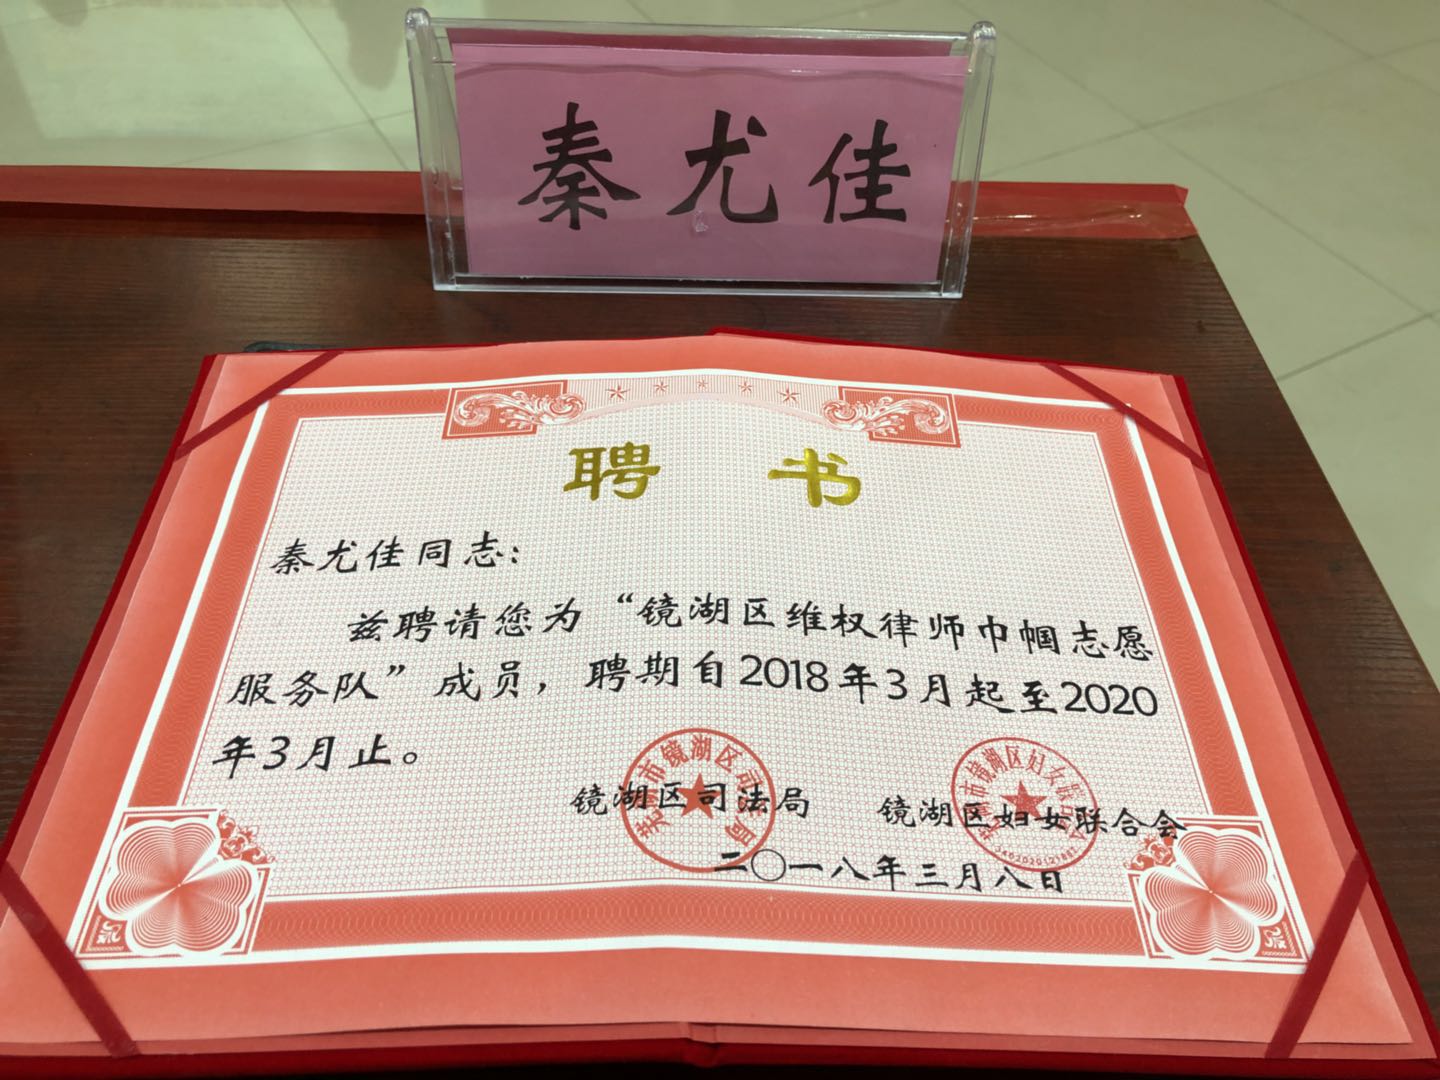 秦尤佳
聘书
秦尤佳同志：
兹聘请您为“镜湖区维权律师巾帼志愿
服务队”成员，聘期自2018年3月起至2020
年3月止。
芜湖市镜湖区司法局
镜湖区司法局 镜湖区妇女联合会
二〇一八年三月八日